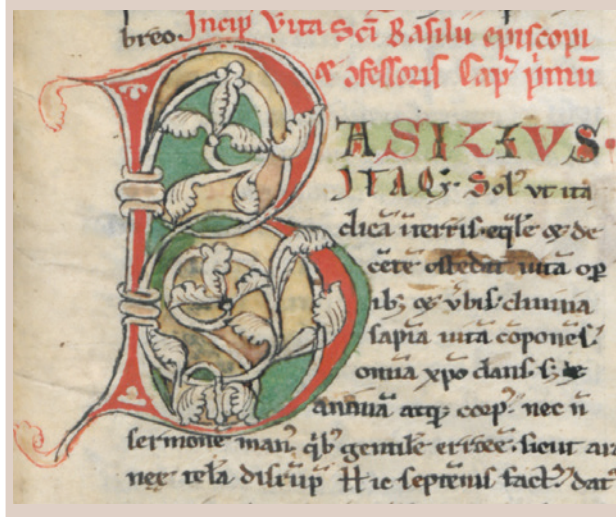 breo. Incip Vita Sci Basilii episcopi
& ɔfessoris Cap̄ p̄mū
BASILIVS.
ITAQ; Sol' vt ita
dicā ī terris.
cete ostedit uitā
ib; & vbis diuina
sap̄ia uitā cōponēs.
om̄ia xp̄o dans s;
anima atq; corp̄. nec ī
sermone man; qb; gentile errore. sicut
nee tela disrup̄ Hic septenis fact; dat